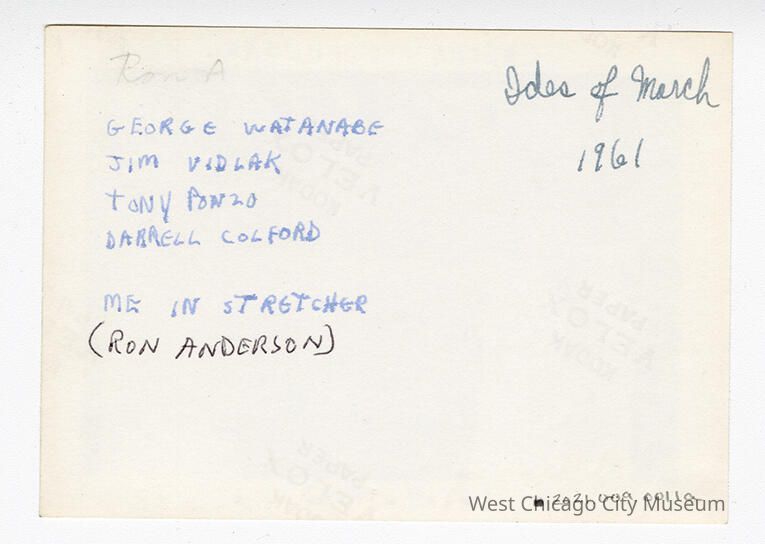 Ron A
Ides of March
1961
GEORGE WATANABE
JIM VIDLAK
TONY PONZO
DARRELL COLFORD
ME IN STRETCHER
(RON ANDERSON)
KODAK
VELOX
PAPER
KODAK
VELOX
PAPER
KODAK
VELOX
PAPER
2021.009.00118
West Chicago City Museum